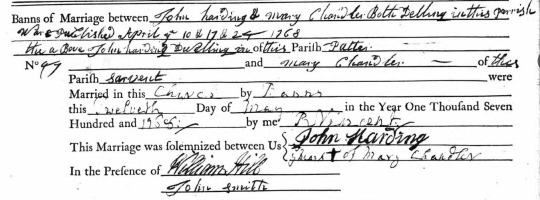 Banns of Marriage between John harding & mary Chandler Both Dwelling in this parrish
Were Published April 10 & 17 & 24 1768
the a Bove John harding Dwelling in of this Parish
No 99 and mary Chandler of this
Parish sarvent were
Married in this Church by Banns
this twelveth Day of May in the Year One Thousand Seven
Hundred and 1768 by me R Vincent
This Marriage was solemnized between Us John Harding
the mark of Mary Chandler
In the Presence of William Hill
John smith